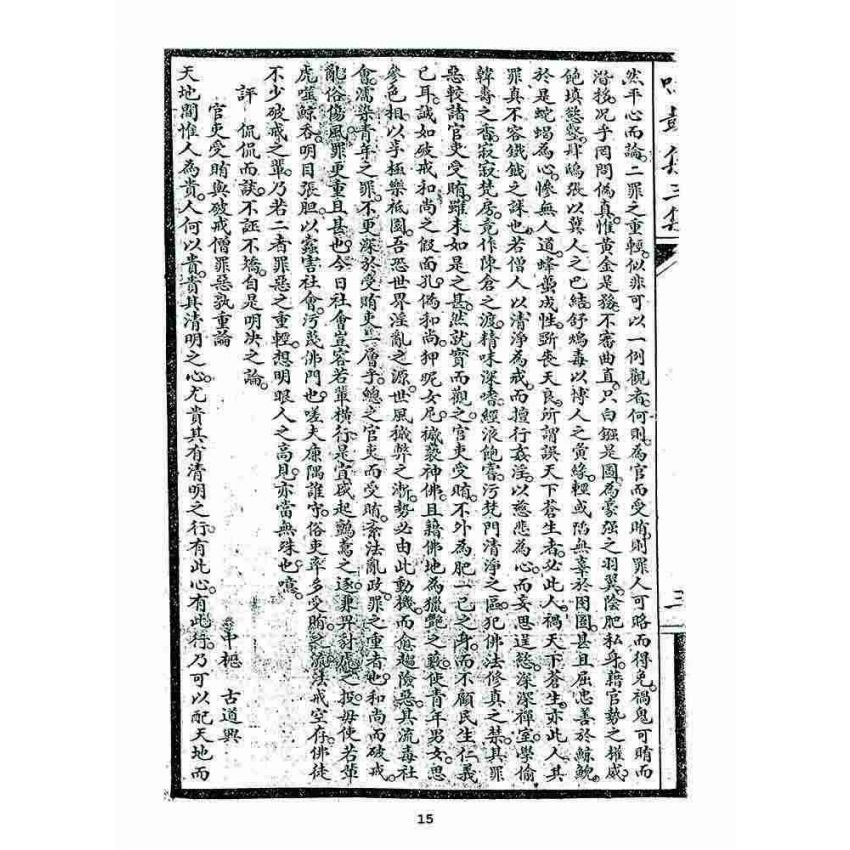 集三集
三
然平心而論。二罪之重輕。似非可以一例觀者。何則。為官而受賄。則罪人可略而得免。禍鬼可賄而
潛移。况乎罔問偽真。惟黃金是務。不審曲直。只白鏹是圖。為豪强之羽翼。陰肥私身。藉官勢之權威。
飽填慾壑。肆鴟張以冀人之巴結。舒鴆毒以博人之夤緣。輕或陷無辜於囹圄。甚且屈忠善於鯨鯢。
於是蛇蝎為心。慘無人道。蜂蠆成性。斲喪天良。所謂誤天下蒼生者。必此人。禍天下蒼生。亦此人。其
罪真不容鐵鉞之誅也。若僧人以清淨為戒。而擅行姦淫。以慈悲為心。而妄思逞慾。深深禪室。學偷
韓壽之香。寂寂梵房。竟作陳倉之渡。精味深嗜。經液飽富。污梵門清淨之區。犯佛法修真之禁。其罪
惡較諸官吏受賄。雖未如是之甚。然就實而觀之。官吏受賄。不外為肥一己之身。而不顧民生仁義
已耳。誠如破戒和尚之假面孔。偽和尚。狎昵女尼。穢褻神佛。且藉佛地為獵艷之藪。使青年男女。思
參色相。以爭極樂祇園。吾恐世界淫亂之源。世風瀓弊之漸。勢必由此動機。而愈趨險惡。其流毒社
會。濡染青年之罪。不更深於受賄吏一層乎。總之官吏而受賄。紊法亂政。罪之重者也。和尚而破戒。
亂俗傷風。罪更重且甚也。今日社會豈容若輩橫行。是宜威起鸇鳶之逐。兼畀豺虎之投。毋使若輩
虎噬鯨吞。明目張胆。以蠹害社會。污蔑佛門也。嗟夫廉隅誰守。俗吏率多受賄之流。法戒空存。佛徒
不少破戒之輩。乃若二者罪惡之重輕。想明眼人之高見。亦當無殊也。噫。
評 侃侃而談。不誣不矯。自是明决之論。
官吏受賄與破戒僧罪惡孰重論 古道興
天地間惟人為貴。人何以貴。貴其清明之心。尤貴其有清明之行。有此心。有此行。乃可以配天地而
15